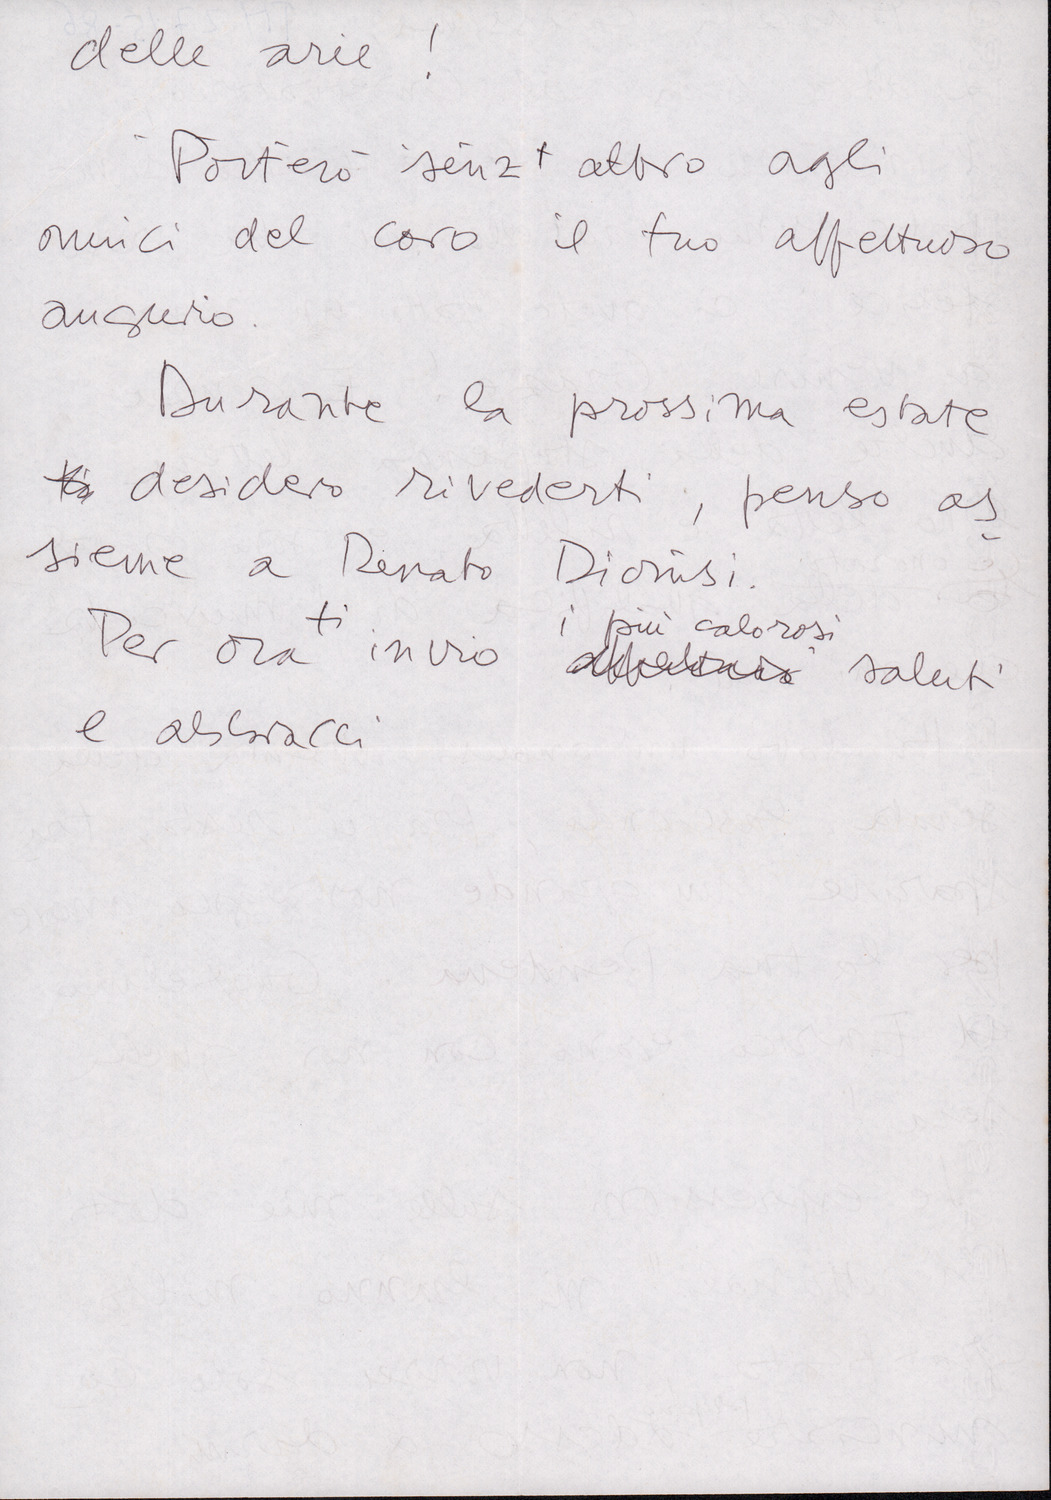 delle arie !
Porterò senz'altro agli
amici del coro il tuo affettuoso
augurio.
Durante la prossima estate
desidero rivederti, penso as
sieme a Renato Dionisi.
Per ora ti invio i più calorosi saluti
e abbracci